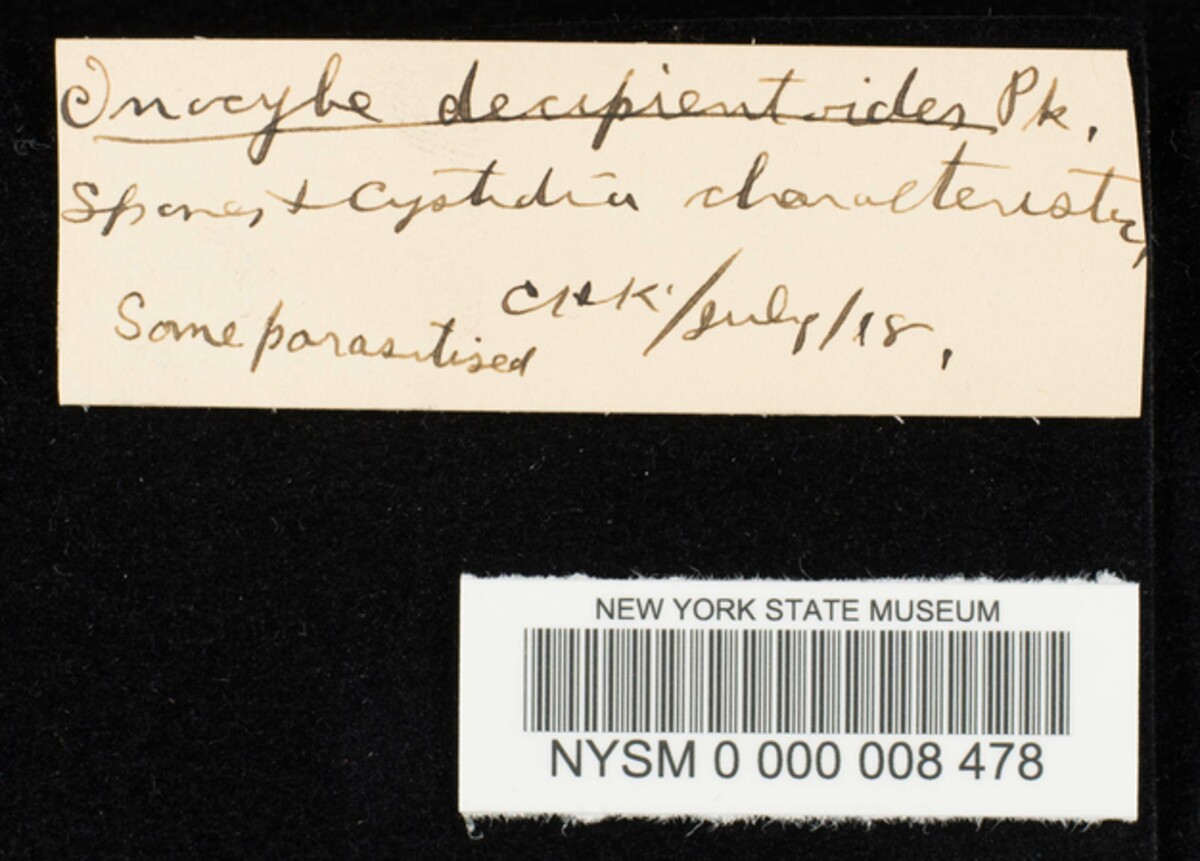 Inocybe decipientoides Pk.
Spores & Cystidia characteristic,
CHK./July/18.
Some parasitised
NEW YORK STATE MUSEUM
NYSM 0 000 008 478